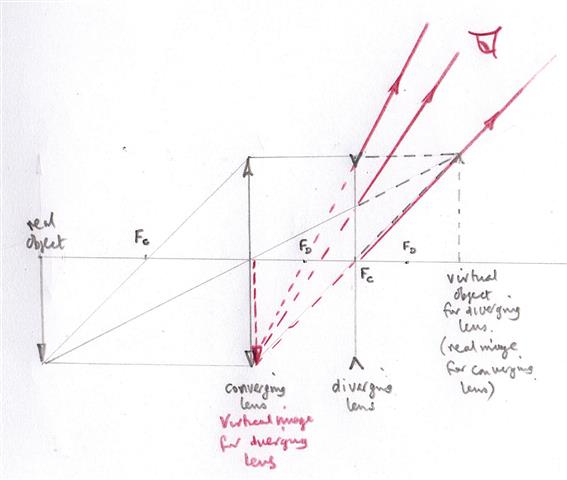 real
object
F_C
F_D
F_C
F_D
virtual
object
for diverging
lens.
(real image
for converging
lens)
converging
lens
virtual image
for diverging
lens
diverging
lens